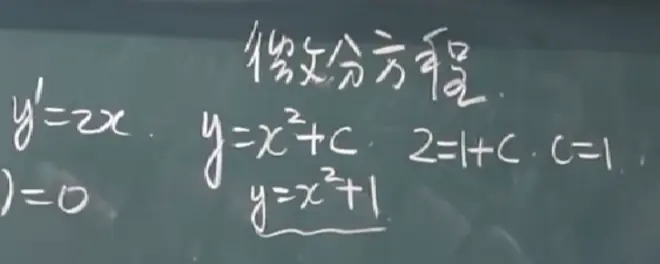 微分方程.
y'=2x. y=x²+C. 2=1+C. C=1.
)=0 y=x²+1